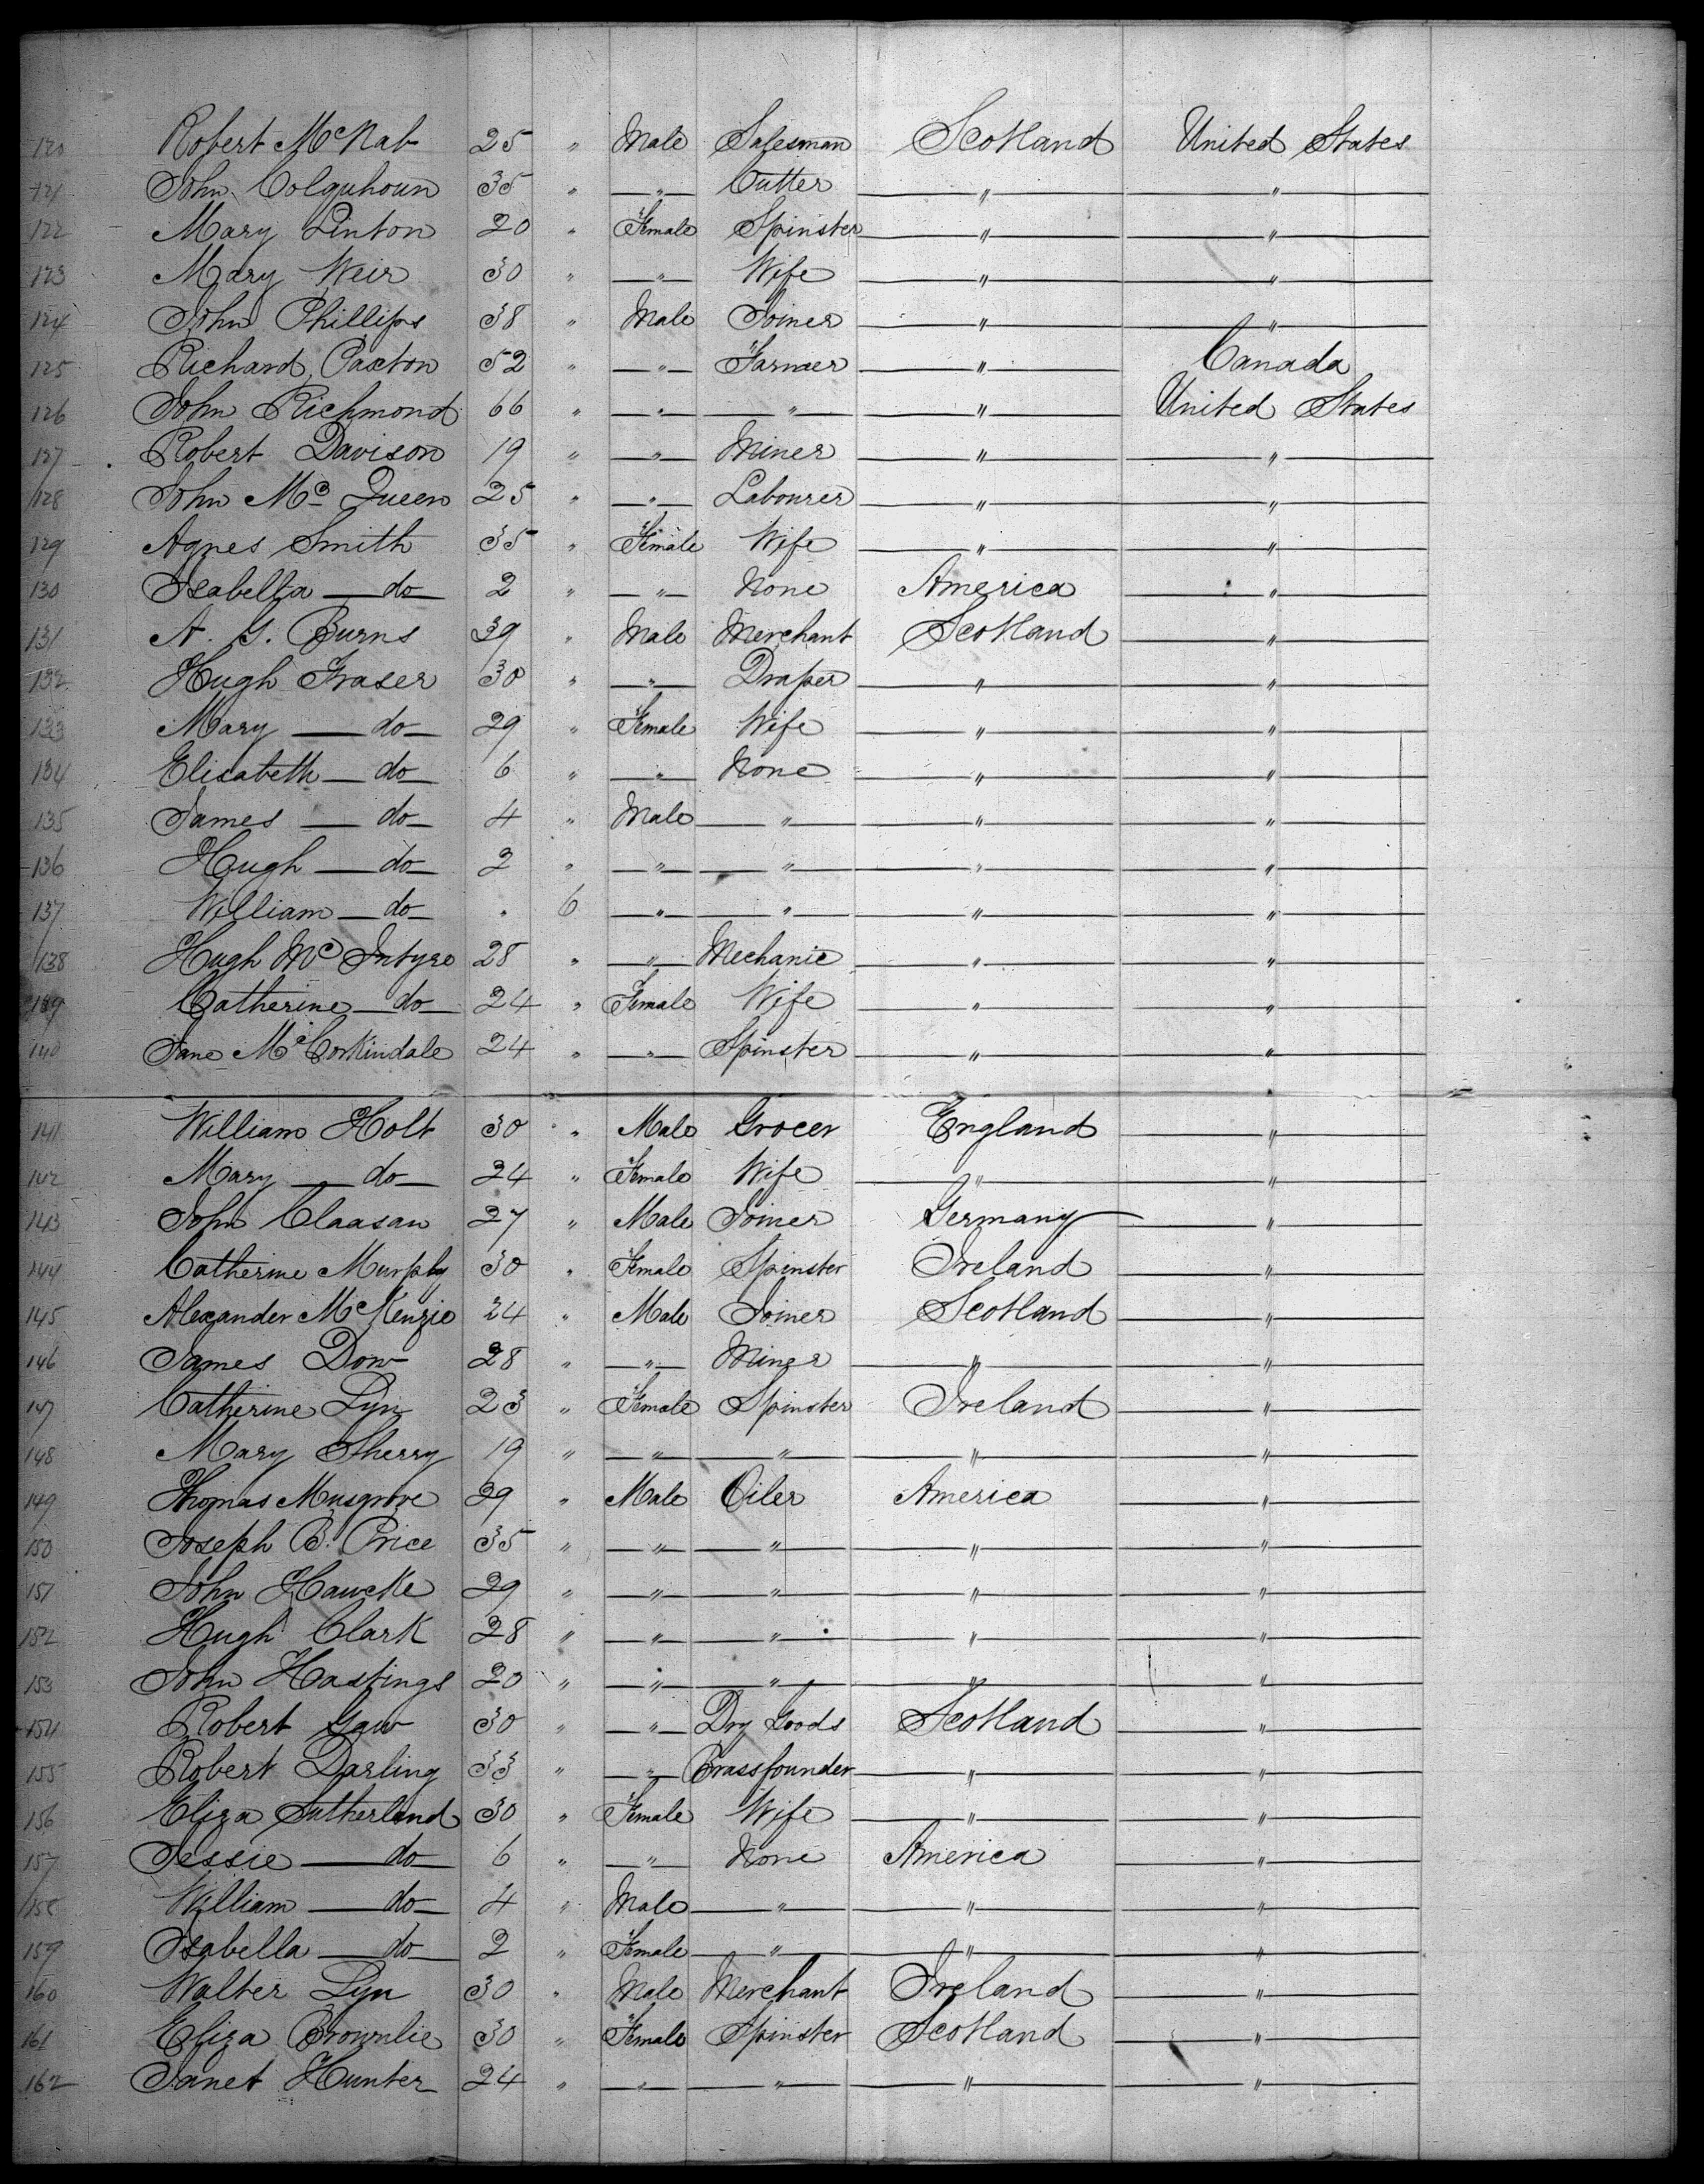 120 Robert McNab 25 " Male Salesman Scotland United States
121 John Colquhoun 35 " " Cutter " "
122 Mary Linton 20 " Female Spinster " "
123 Mary Weir 30 " " Wife " "
124 John Phillips 38 " Male Joiner " "
125 Richard Paxton 52 " " Farmer " Canada
126 John Richmond 66 " " " " United States
127 Robert Davison 19 " " Miner " "
128 John Mc Queen 25 " " Labourer " "
129 Agnes Smith 35 " Female Wife " "
130 Isabella do 2 " " None America "
131 A. G. Burns 39 " Male Merchant Scotland "
132 Hugh Fraser 30 " " Draper " "
133 Mary do 29 " Female Wife " "
134 Elisabeth do 6 " " None " "
135 James do 4 " Male " " "
136 Hugh do 2 " " " " "
137 William do " 6 " " " "
138 Hugh Mc Intyre 28 " " Mechanic " "
139 Catherine do 24 " Female Wife " "
140 Jane McCorkindale 24 " " Spinster " "
141 William Holt 30 " Male Grocer England "
142 Mary do 24 " Female Wife " "
143 John Claasan 27 " Male Joiner Germany "
144 Catherine Murphy 30 " Female Spinster Ireland "
145 Alexander McKenzie 24 " Male Joiner Scotland "
146 James Dow 28 " " Miner " "
147 Catherine Lyn 23 " Female Spinster Ireland "
148 Mary Sherry 19 " " " " "
149 Thomas Musgrove 29 " Male Oiler America "
150 Joseph B. Price 35 " " " " "
151 John Hawcke 29 " " " " "
152 Hugh Clark 28 " " " " "
153 John Hastings 20 " " " " "
154 Robert Gaw 30 " " Dry Goods Scotland "
155 Robert Darling 33 " " Brassfounder " "
156 Eliza Sutherland 30 " Female Wife " "
157 Jessie do 6 " " None America "
158 William do 4 " Male " " "
159 Isabella do 2 " Female " " "
160 Walter Lyn 30 " Male Merchant Ireland "
161 Eliza Brownlie 30 " Female Spinster Scotland "
162 Janet Hunter 24 " " " " "